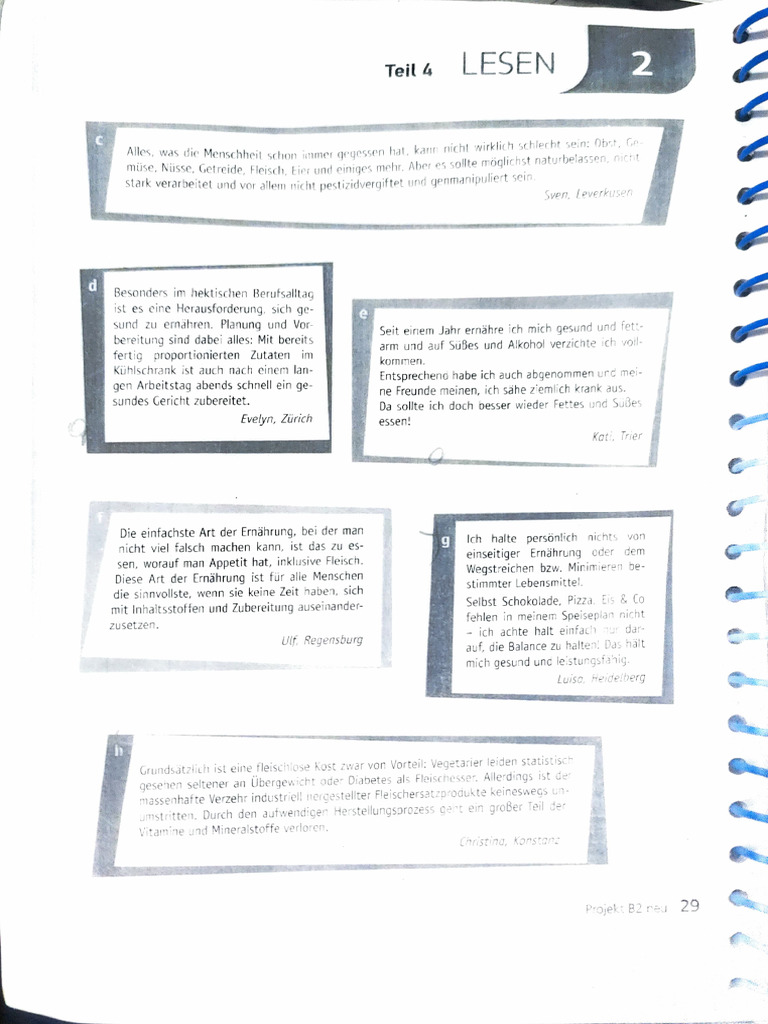 Teil 4 LESEN 2
c
Alles, was die Menschheit schon immer gegessen hat, kann nicht wirklich schlecht sein: Obst, Ge-
müse, Nüsse, Getreide, Fleisch, Eier und einiges mehr. Aber es sollte möglichst naturbelassen, nicht
stark verarbeitet und vor allem nicht pestizidvergiftet und genmanipuliert sein.
Sven, Leverkusen
d
Besonders im hektischen Berufsalltag
ist es eine Herausforderung, sich ge-
sund zu ernähren. Planung und Vor-
bereitung sind dabei alles: Mit bereits
fertig proportionierten Zutaten im
Kühlschrank ist auch nach einem lan-
gen Arbeitstag abends schnell ein ge-
sundes Gericht zubereitet.
Evelyn, Zürich
e
Seit einem Jahr ernähre ich mich gesund und fett-
arm und auf Süßes und Alkohol verzichte ich voll-
kommen.
Entsprechend habe ich auch abgenommen und mei-
ne Freunde meinen, ich sähe ziemlich krank aus.
Da sollte ich doch besser wieder Fettes und Süßes
essen!
Kati, Trier
f
Die einfachste Art der Ernährung, bei der man
nicht viel falsch machen kann, ist das zu es-
sen, worauf man Appetit hat, inklusive Fleisch.
Diese Art der Ernährung ist für alle Menschen
die sinnvollste, wenn sie keine Zeit haben, sich
mit Inhaltsstoffen und Zubereitung auseinander-
zusetzen.
Ulf, Regensburg
g
Ich halte persönlich nichts von
einseitiger Ernährung oder dem
Wegstreichen bzw. Minimieren be-
stimmter Lebensmittel.
Selbst Schokolade, Pizza, Eis & Co
fehlen in meinem Speiseplan nicht
– ich achte halt einfach nur dar-
auf, die Balance zu halten! Das hält
mich gesund und leistungsfähig.
Luisa, Heidelberg
h
Grundsätzlich ist eine fleischlose Kost zwar von Vorteil: Vegetarier leiden statistisch
gesehen seltener an Übergewicht oder Diabetes als Fleischesser. Allerdings ist der
massenhafte Verzehr industriell hergestellter Fleischersatzprodukte keineswegs un-
umstritten. Durch den aufwendigen Herstellungsprozess geht ein großer Teil der
Vitamine und Mineralstoffe verloren.
Christina, Konstanz
Projekt B2 neu 29